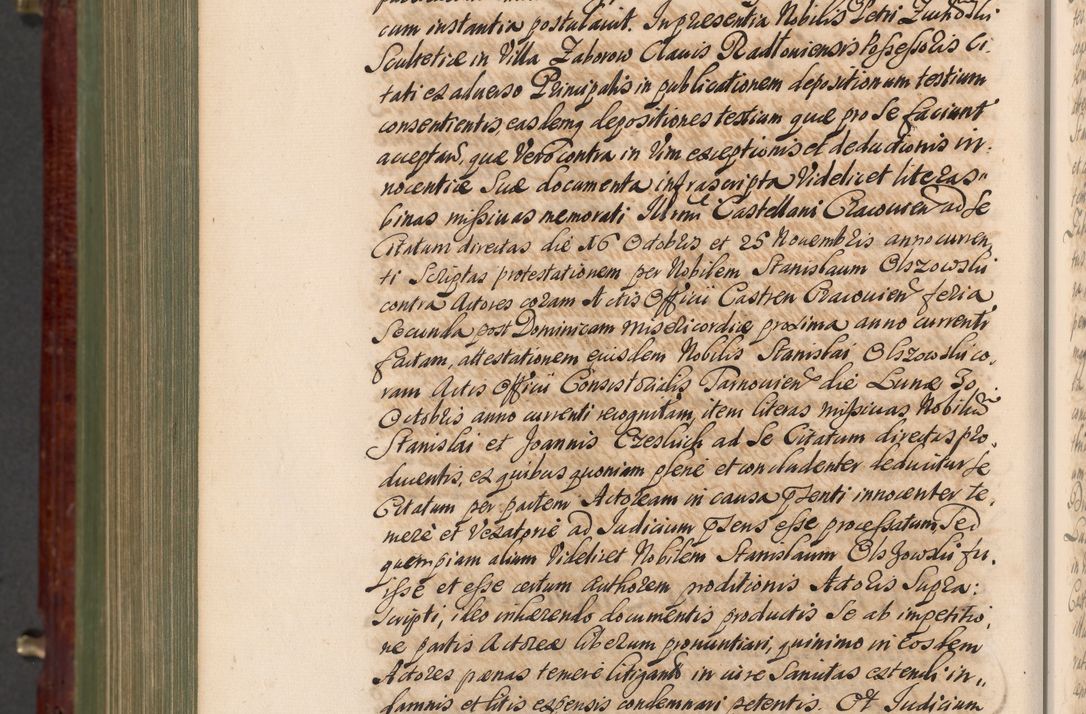 cum instantia postulavit. In præsentia Nobilis Petri Zuchowski
Scultetiæ in Villa Zaborow Clavis Radłoviensis Possessoris Ci-
tati ex adverso Principalis in publicationem depositionum testium
consentientis, easdemq depositiones testium quæ pro Se faciunt
acceptan, quæ Vero contra in Vim exceptionis et deductionis in-
nocentiæ Suæ documenta infrascripta Videlicet literas
binas missivas memorati Illrmi Castellani Cracovien ad Se
Citatum directas die 16 Octobris et 25 Novembris anno curren-
ti Scriptas protestationem per Nobilem Stanislaum Olszowski
contra Actores coram Actis Officii Castren Cracovien feria
Secunda post Dominicam Misericordiæ proxima anno currenti
factam, attestationem ejusdem Nobilis Stanislai Olszowski co-
ram Actis Officii Consistorialis Tarnovien die Lunæ 30
Octobris anno currenti recognitam, item literas missivas Nobiliū
Stanislai et Joannis Czeskich ad Se Citatum directas pro-
ducentis, ex quibus quoniam plene et concludenter deducitur Se
Citatum per partem Actoream in causa pſenti innocenter te-
mere et Vexatorie ad Judicium pſens esse processatum, Sed
quempiam alium Videlicet Nobilem Stanislaum Olszowski fu-
isse et esse certum authorem proditionis Actoris Supra-
scripti, ideo inhærendo documentis productis Se ab impetitio-
ne partis Actoreæ liberum pronuntiari, quinimo in eosdem
Actores pænas temere litigantū in jure Sancitas extendi in
damnis et litis expensis condemnari petentis. Et Judicium